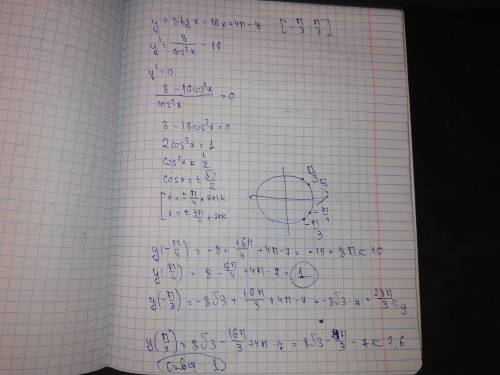 y = 8tgx - 16x + 4π - 7 [-π/3 π/3]
y' = 8/cos²x - 16
y' = 0
8 - 16cos²x/cos²x = 0
8 - 16cos²x = 0
2cos²x = 1
cos²x = 1/2
cosx = ± √2/2
x = ± π/4 + 2πk
x = ± 3π/4 + 2πk
π/3
-π/3
y(-π/4) = -8 + 16π/4 + 4π - 7 = -15 + 8π ≈ 10
y(π/4) = 8 - 16π/4 + 4π - 7 = 1
y(-π/3) = -8√3 + 16π/3 + 4π - 7 = -8√3 - 7 + 28π/3 ≈ 9
y(π/3) = 8√3 - 16π/3 + 4π - 7 = 8√3 - 4π/3 - 7 ≈ 2,6
Ответ 1